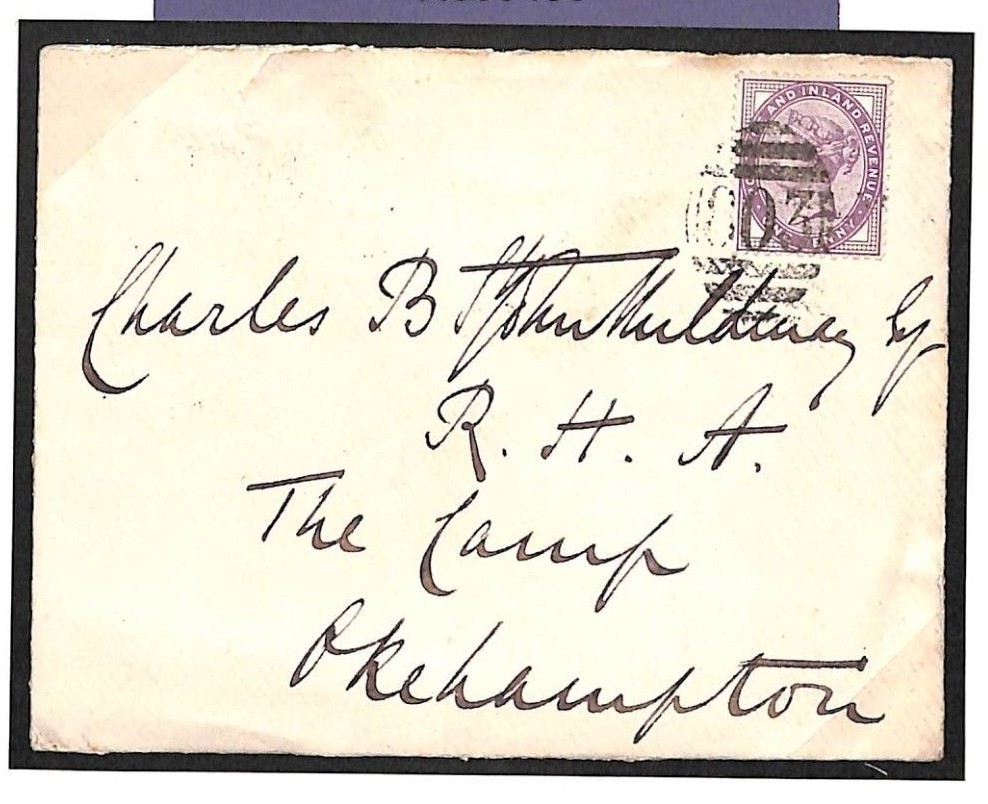 AND INLAND REVENUE
Charles B St John Mildmay Esq
R. H. A.
The Camp
Okehampton